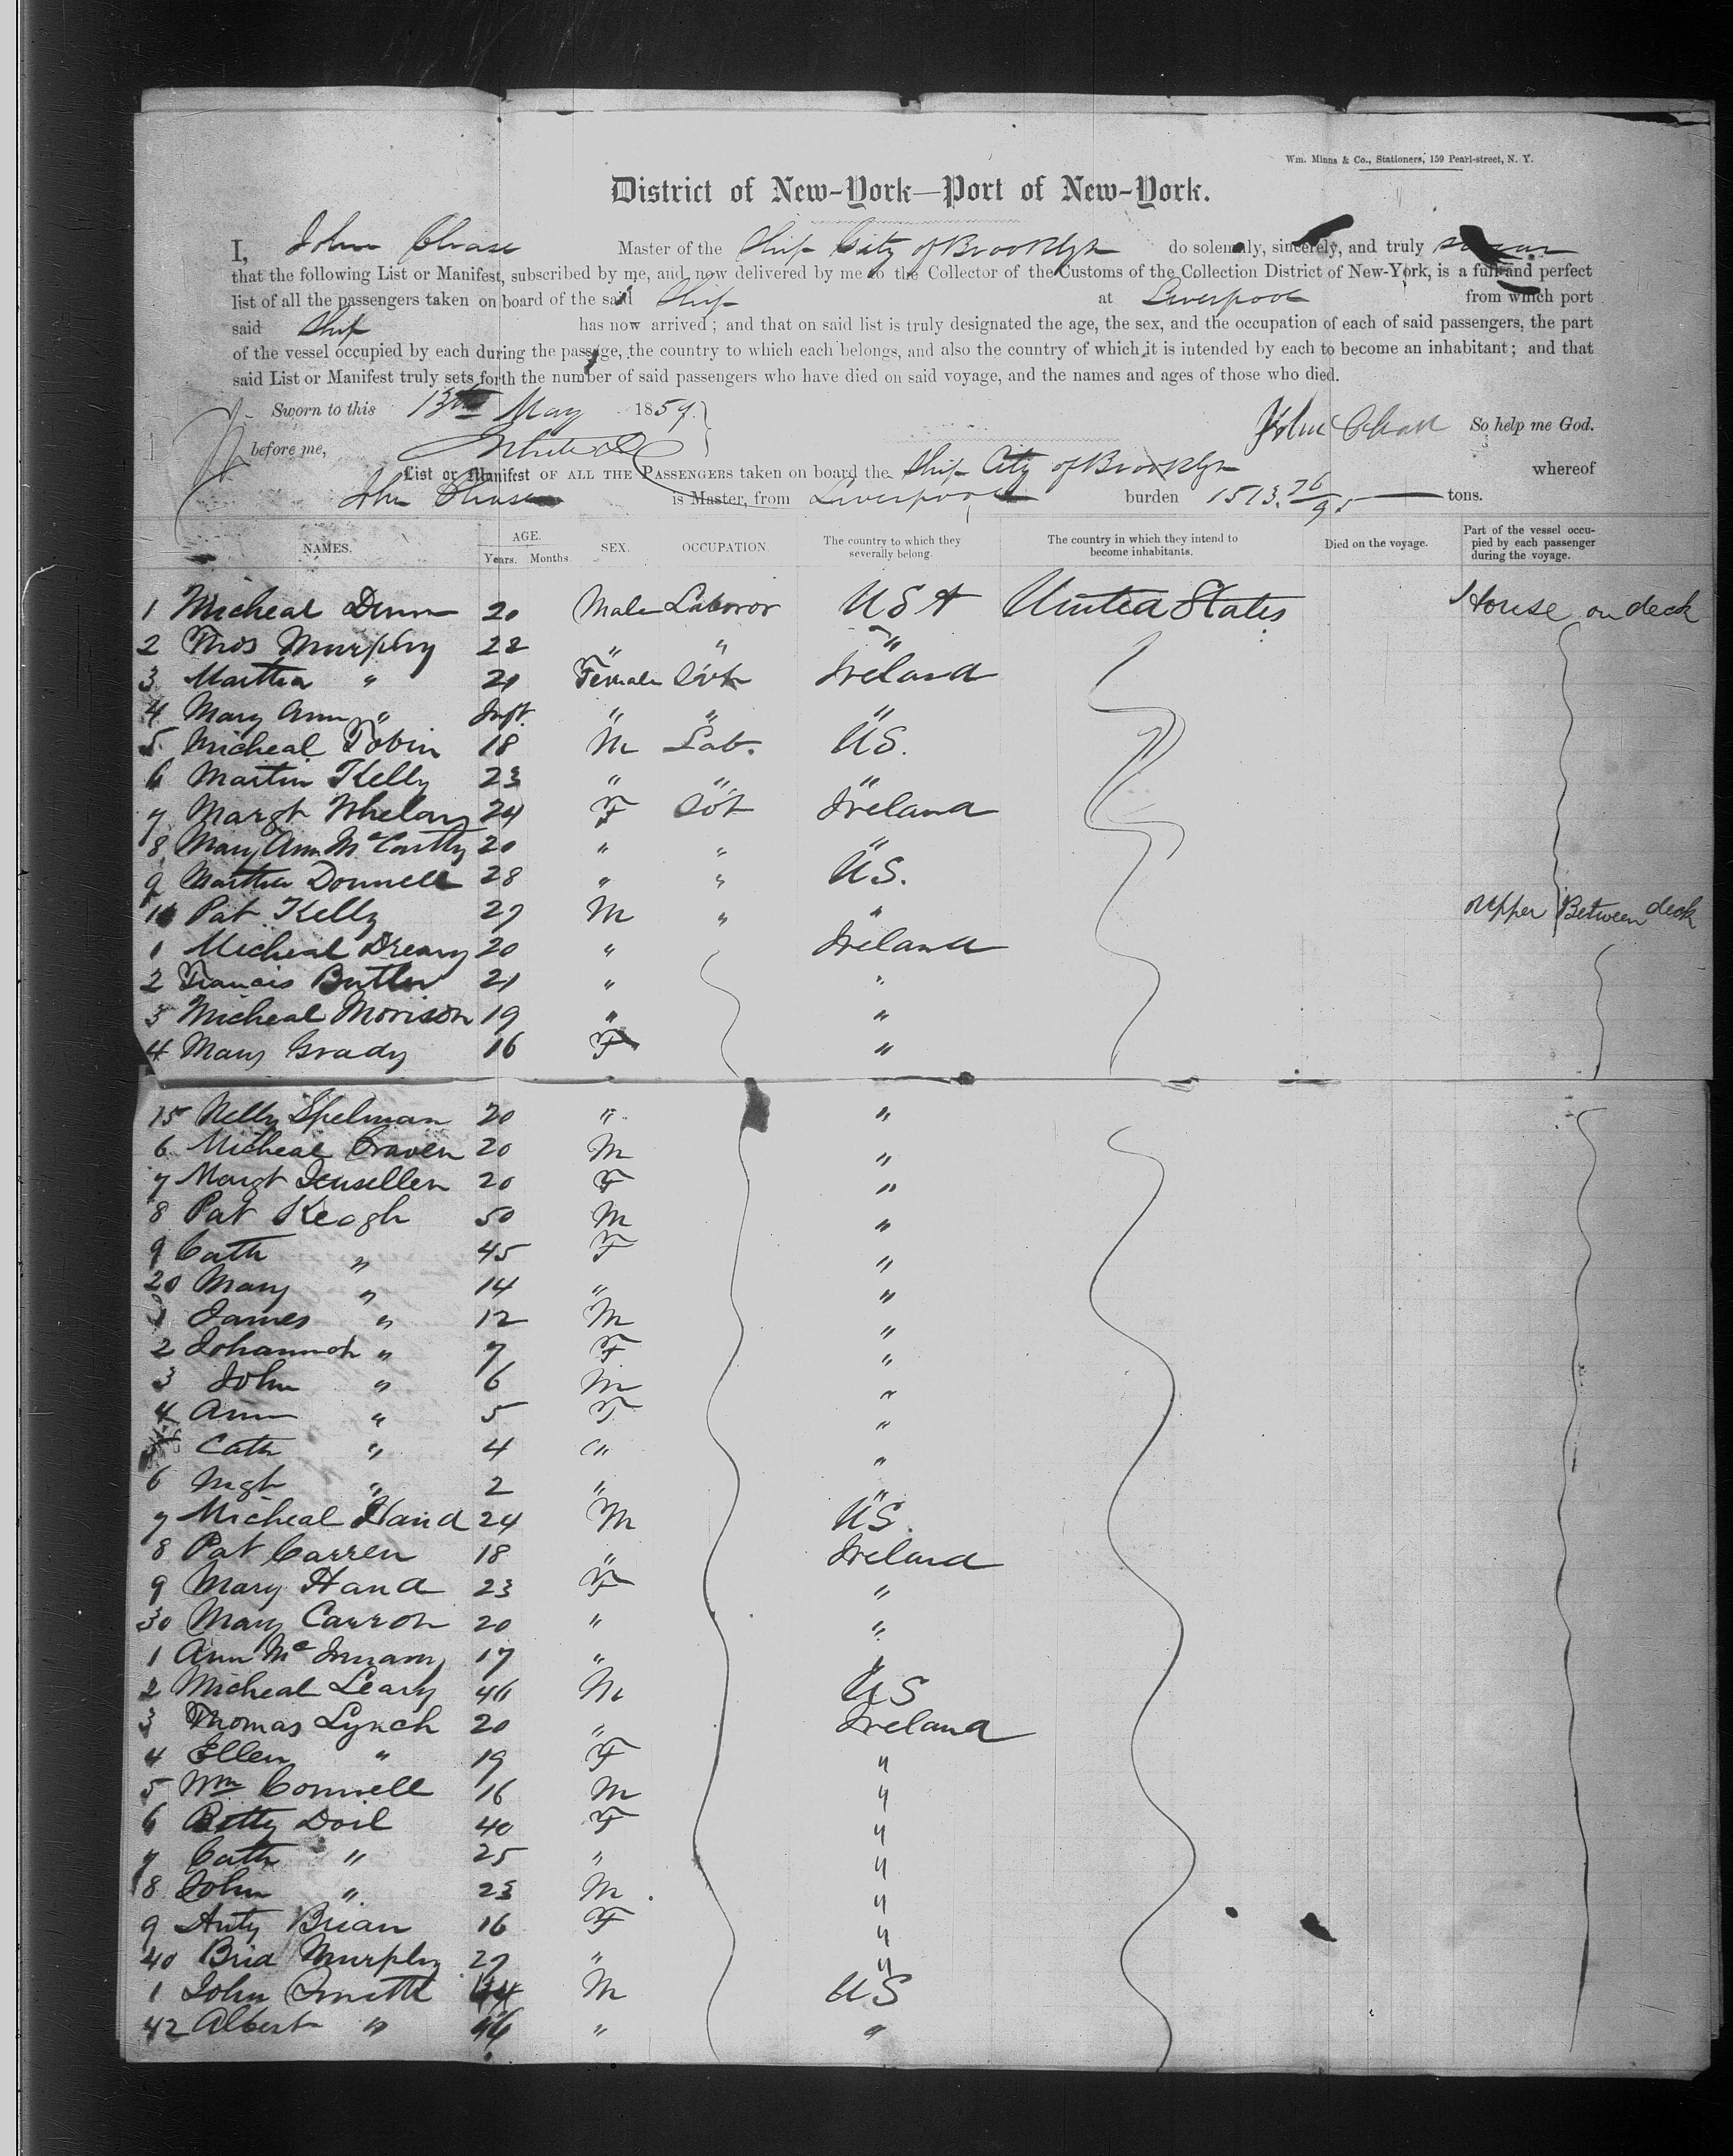 Wm. Minns & Co., Stationers, 159 Pearl-street, N. Y.
District of New-York—Port of New-York.
I, John Chase Master of the Ship City of Brooklyn do solemnly, sincerely, and truly swear
that the following List or Manifest, subscribed by me, and now delivered by me to the Collector of the Customs of the Collection District of New-York, is a full and perfect
list of all the passengers taken on board of the said Ship at Liverpool from which port
said Ship has now arrived; and that on said list is truly designated the age, the sex, and the occupation of each of said passengers, the part
of the vessel occupied by each during the passage, the country to which each belongs, and also the country of which it is intended by each to become an inhabitant; and that
said List or Manifest truly sets forth the number of said passengers who have died on said voyage, and the names and ages of those who died.
Sworn to this 13th May 1859. John Chase So help me God.
before me,
List or Manifest OF ALL THE PASSENGERS taken on board the Ship City of Brooklyn whereof
John Chase is Master, from Liverpool burden 1513. 76/95 tons.
NAMES. AGE. Years. Months. SEX. OCCUPATION. The country to which they severally belong. The country in which they intend to become inhabitants. Died on the voyage. Part of the vessel occupied by each passenger during the voyage.
1 Micheal Dunn 20 Male Laboror USA United States House on deck
2 Thos Murphy 22 " " "
3 Martha " 21 Female Ireland
4 Mary Ann " Inft. " " "
5 Micheal Tobin 18 M Lab. US.
6 Martin Kelly 23 " " "
7 Margt Whelan 24 F Ireland
8 Mary Ann McCarthy 20 " " "
9 Martha Donnell 28 " " US.
10 Pat Kelly 27 M " " Upper Between deck
1 Micheal Dreary 20 " Ireland
2 Francis Butler 21 " "
3 Micheal Morison 19 " "
4 Mary Grady 16 F "
15 Nelly Spelman 20 " "
6 Micheal Craven 20 M "
7 Margt 20 F "
8 Pat Keogh 50 M "
9 Cath " 45 F "
20 Mary " 14 " "
1 James " 12 M "
2 Johannah " 7 F "
3 John " 6 M "
4 Ann " 5 F "
5 Cath " 4 " "
6 Mgt " 2 " "
7 Micheal Hand 24 M US.
8 Pat Carren 18 " Ireland
9 Mary Hand 23 F "
30 Mary Carron 20 " "
1 Ann Mc 17 " "
2 Micheal Leary 46 M US
3 Thomas Lynch 20 " Ireland
4 Ellen " 19 F "
5 Wm Connell 16 M "
6 Betty Doil 40 F "
7 Cath " 25 " "
8 John " 23 M "
9 Anty Brian 16 F "
40 Brid Murphy 27 " "
1 John Smith M US
42 Albert " " "